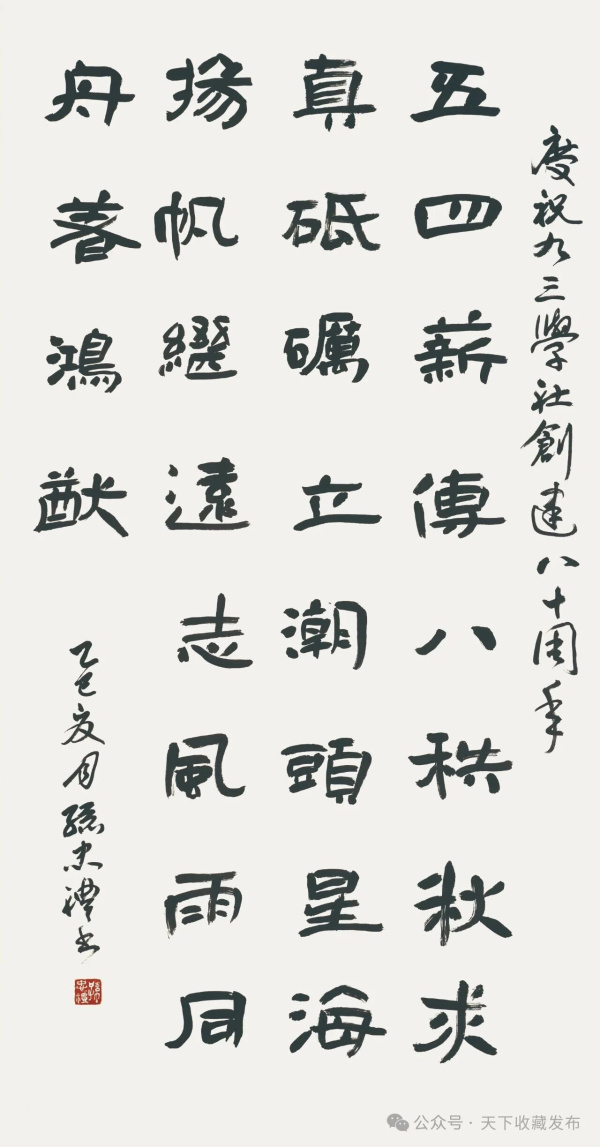 慶祝九三學社創建八十周年
五四薪傳八秩秋求
真砥礪立潮頭星海
揚帆繼遠志風雨同
舟著鴻猷
乙巳夏月孫忠禮書
公众号 · 天下收藏发布